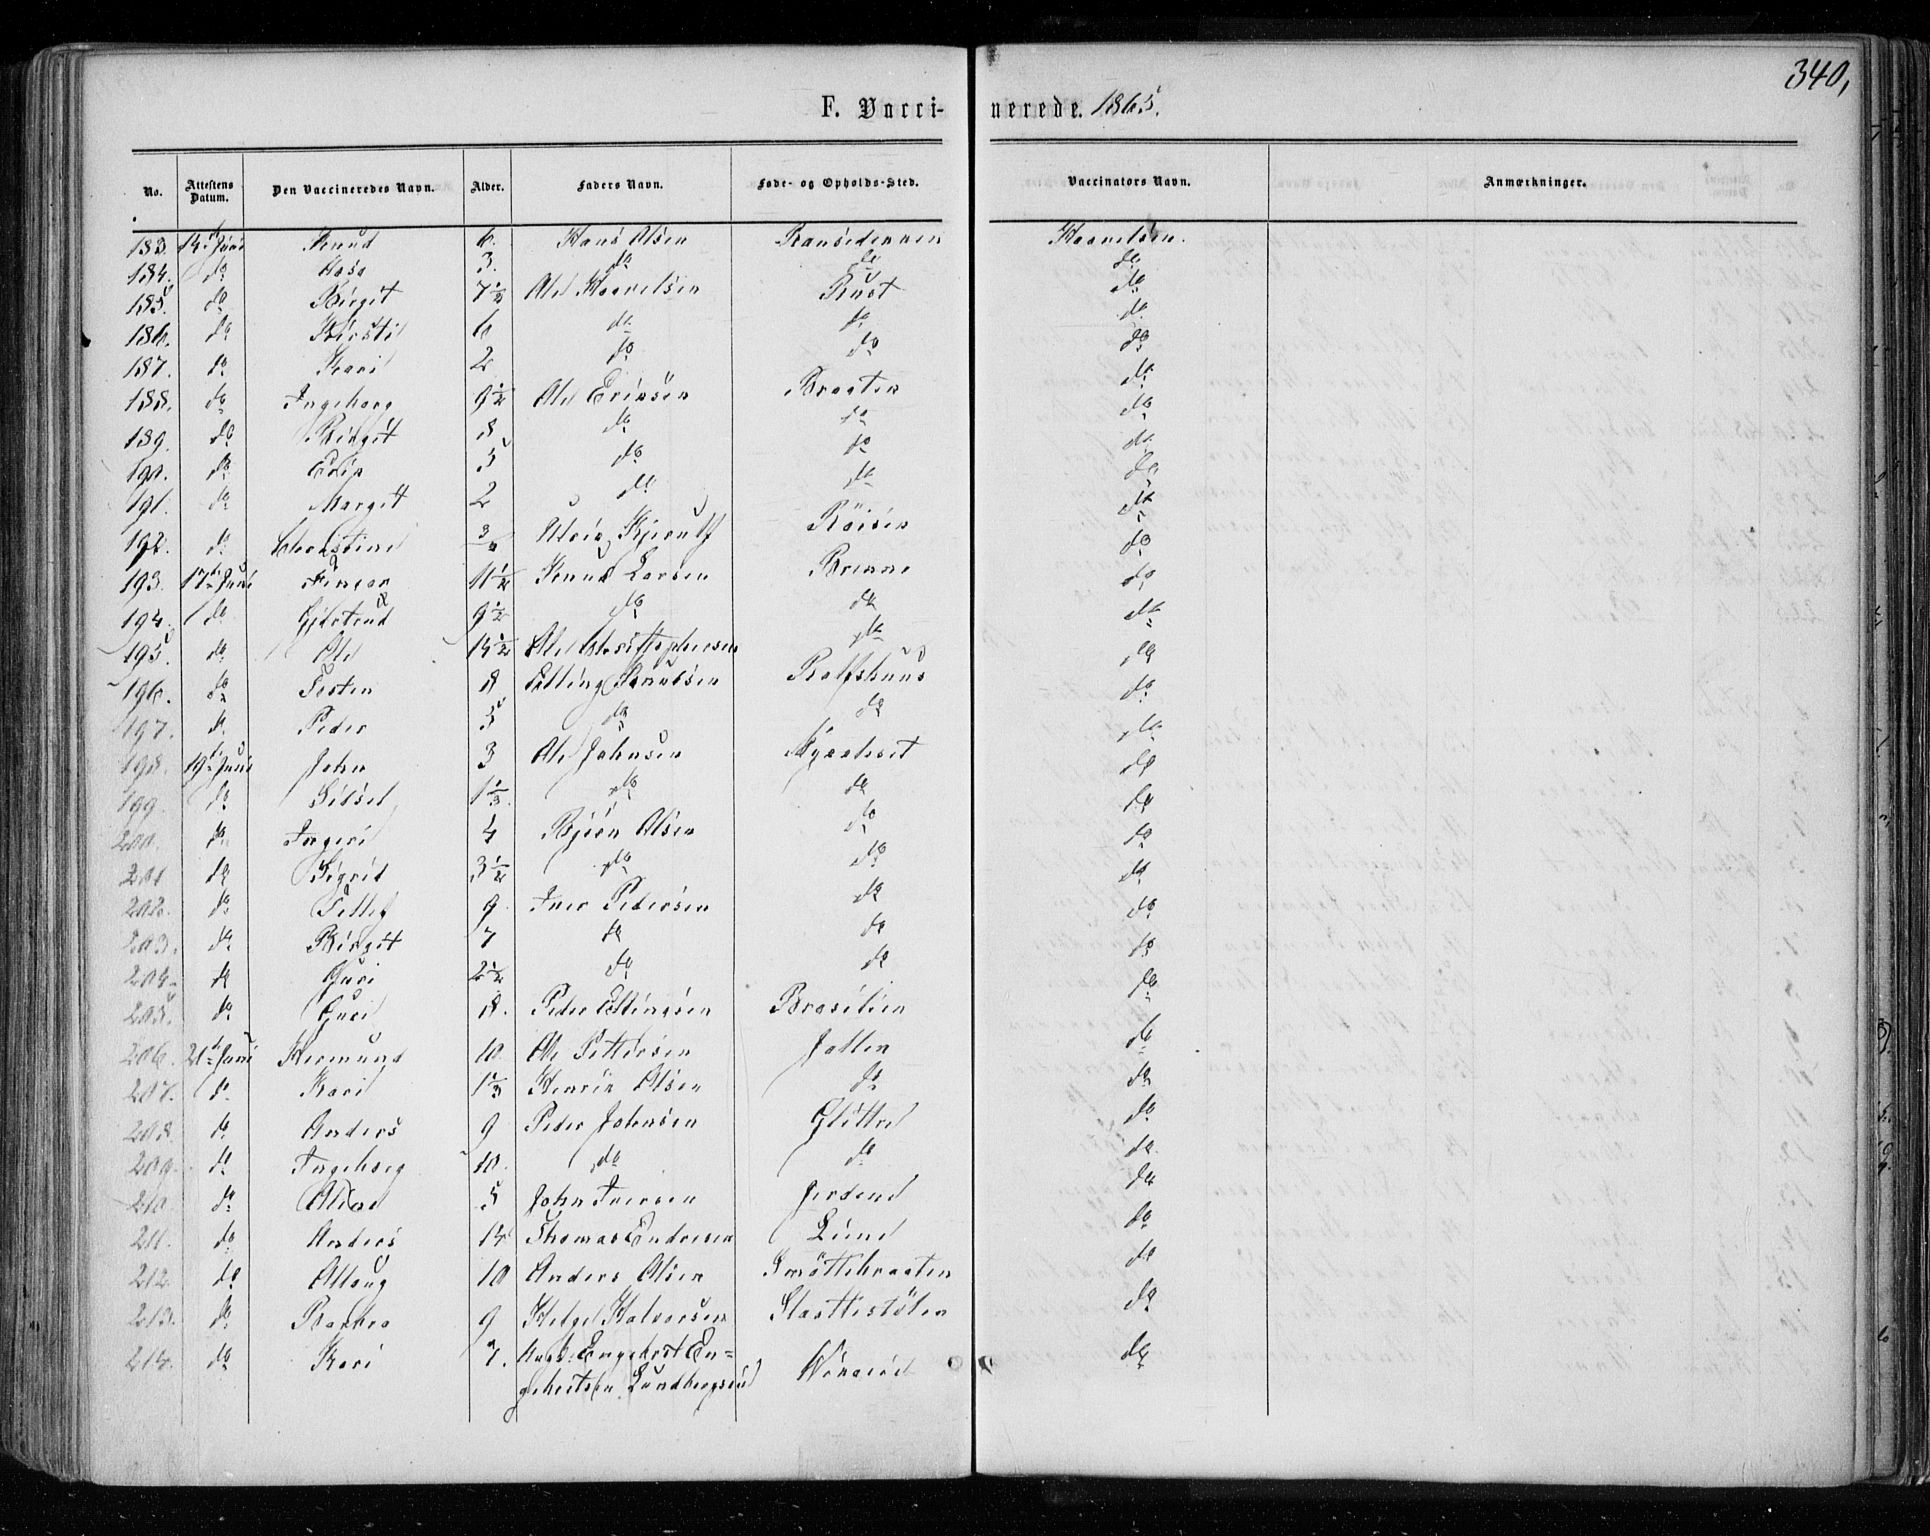 340,
F. Vacci- nerede. 1865.
No. Attestens Datum. Den Vaccineredes Navn. Alder. Faders Navn. Føde- og Opholds-Sted. Vaccinators Navn. Anmærkninger.
183. 14de Juni Knud 6. Hans Olsen
184. do Aase 3. do do do
185. do Birgit 7 1/2 Ole Haavelsen Rust do
186. do Kirsti 6 do do do
187. do Kari 2 do do do
188. do Ingeborg 9 1/2 Ole Eriksen Braaten do
189. do Birgit 8 do do do
190. do Erik 5 do do do
191. do Margit 2 do do do
192. do Christine 3/4 Røisen do
193. 17de Juni 11 1/2 Knud Larsen do
194. do Gjertrud 9 1/2 do do do
195. do Ole 14 1/2 Ole Christophersen do do
196. do Torsten 8 Elling Knudsen Rolfshuus do
197. do Peder 5 do do do
198. 19de Juni John 3 Ole Johnsen do
199. do Sidsel 1 1/3 do do do
200. do Ingeri 4 Bjørn Olsen do do
201 do Sigrid 3 1/2 do do do
202. do Tollef 9 Iver Pedersen do do
203. do Birgit 7 do do do
204. do Guri 2 1/2 do do do
205. do Guri 8. Peder Ellingsen Brasilien do
206. 21de Juni Hermund 10 Ole Pettersen do
207. do Kari 1 1/3 Henrik Olsen do do
208. do Anders 9 Peder Johnsen Glittre do
209. do Ingeborg 10. do do do
210. do 5 John Iversen do
211. do Anders 14 Thomas Endresen do
212 do Allaug 10 Anders Olsen Smøttebraaten do
213. do Barbra 9 Helge Halvorsen Slaattestølen do
214. do Kari 7. Engebret En=
gebretsen do